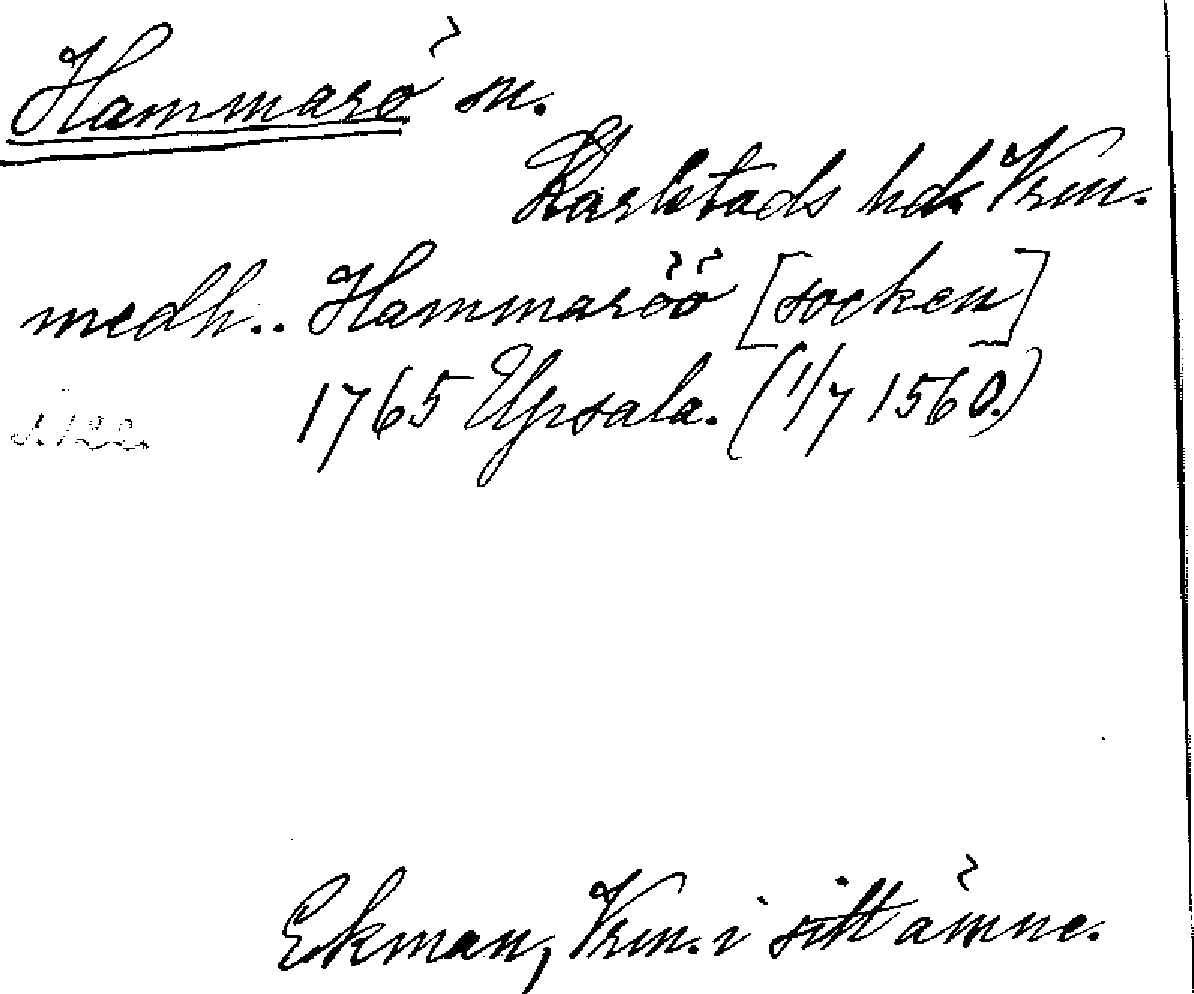 Hammarö sn.
Karlstads hds Vrm.
medh.. Hammaröö [socken]
1765 Upsala. (1/7 1560.)
s. 122.
Ekman, Vrm. i sitt ämne.